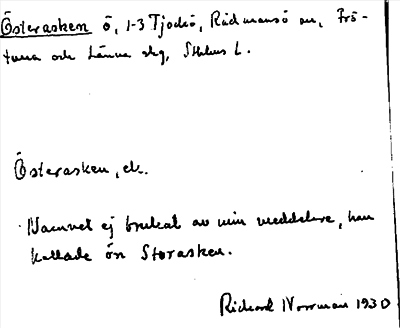 Österasken ö, 1-3 Tjockö, Rådmansö sn, Frö-
tuna och Länna skg, Sthlms L.
Österasken, ek.
Namnet ej brukat av min meddelare, han
kallade ön Storasken.
Richard Norrman 1930